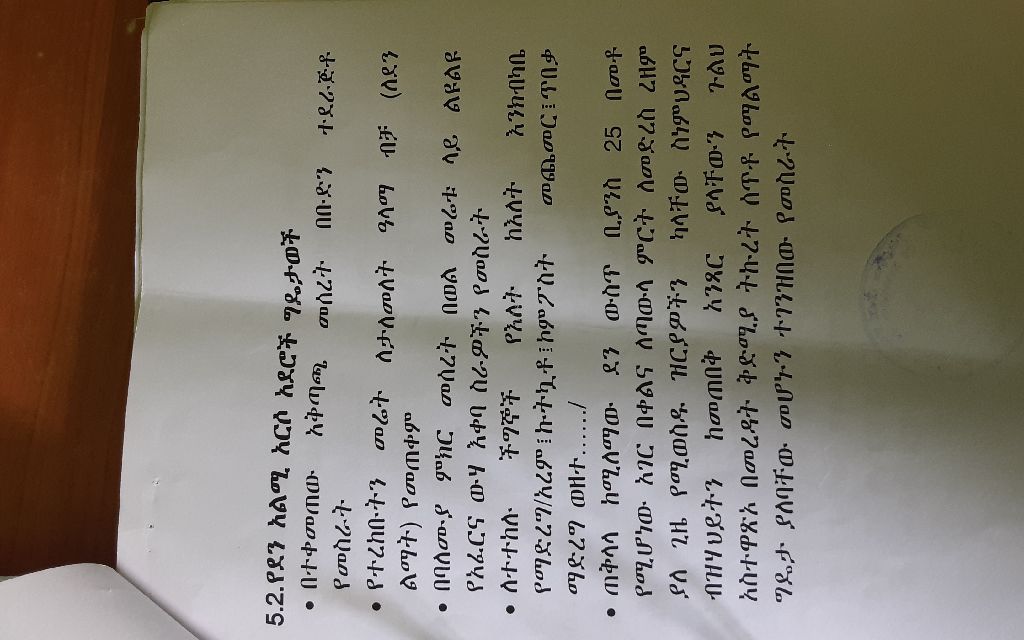 5.2.የደን አልሚ አርሶ አደሮች ግዴታወች
• በተቀመጠው አቅጣጫ መሰረት በቡድን ተደራጅቶ
የመስራት
• የተረከቡትን መሬት ለታለመለት ዓላማ ብቻ (ለደን
ልማት) የመጠቀም
• በባለሙያ ምክር መሰረት በወል መሬቱ ላይ ልዩልዩ
የአፈርና ውሃ እቀባ ስራዎችን የመስራት
• ለተተከሉ ችግኞች የእለት ከእለት እንክብካቤ
የማድረግ/አረም፤ኩትኳቶ፤ኮምፖስት መጨመር፤ጥበቃ
ማድረግ ወዘተ……./
• በቅላላ ከሚለማው ደን ውስጥ ቢያንስ 25 በመቶ
የሚሆነው አገር በቀልና ለጣውላ ምርት ለመድረስ ረዘም
ያለ ጊዜ የሚወስዱ ዝርያዎችን ካላቸው ስነምህዳርና
ብዝሃህይትን ከመጠበቅ አንጻር ያላቸውን ጉልህ
አስተዋጽኦ በመረዳት ቅድሚያ ትኩረት ሰጥቶ የማልማት
ግዴታ ያለባቸው መሆኑን ተገንዝበው የመስራት